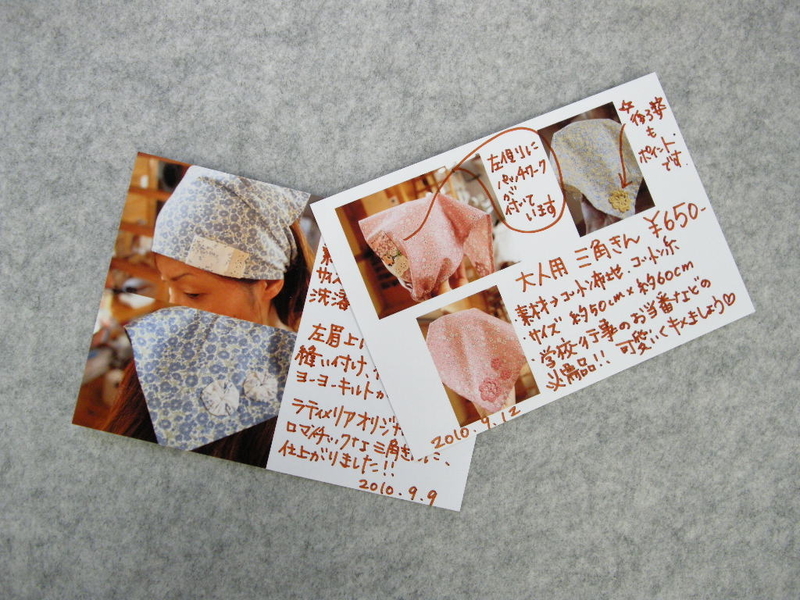 左眉上
縫い付け
ヨーヨーキルトが
ラティメリアオリジナ
ロマンチックな三角き
仕上がりました!!
2010.9.9
左側りに
パッチワーク
が
付いて
います
☆後ろ姿
も
ポイント
です。
大人用 三角きん ¥650-
素材→コットン布地・コットン糸
・サイズ 約50cm×約60cm
学校行事のお当番などの
必需品!! 可愛いくキメましょう♡
2010.9.12